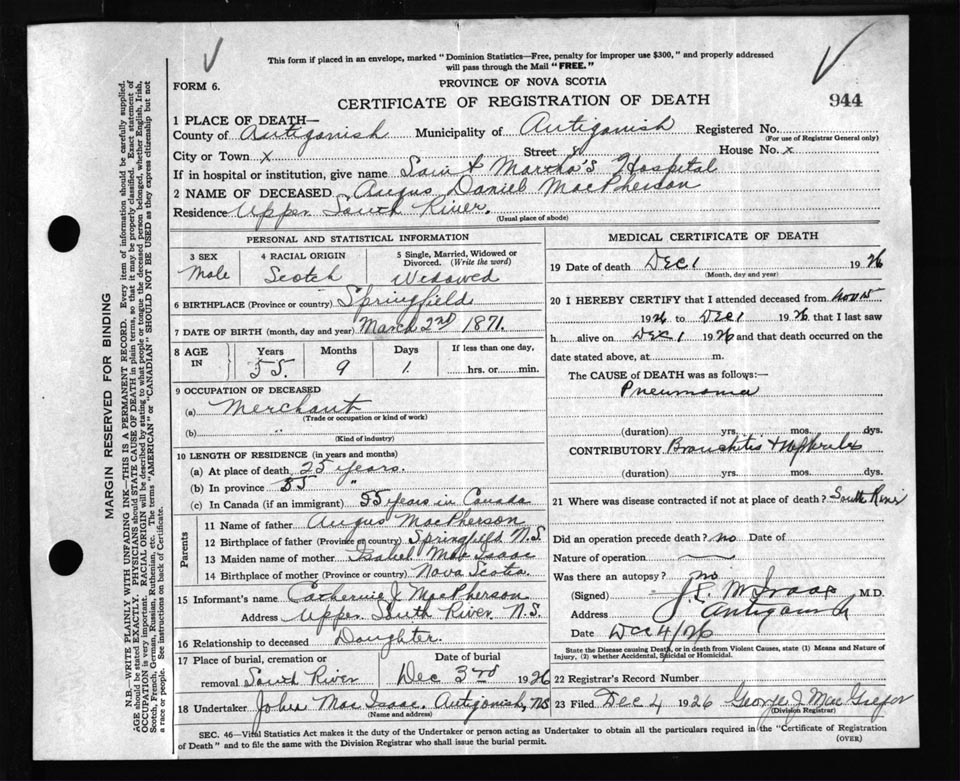 This form if placed in an envelope, marked "Dominion Statistics—Free, penalty for improper use $300," and properly addressed
will pass through the Mail "FREE."
FORM 6.
PROVINCE OF NOVA SCOTIA
CERTIFICATE OF REGISTRATION OF DEATH
944
1 PLACE OF DEATH—
County of Antigonish Municipality of Antigonish Registered No.
(For use of Registrar General only)
City or Town x Street 8 House No. x
If in hospital or institution, give name Saint Martha's Hospital
2 NAME OF DECEASED Angus Daniel MacPherson
Residence Upper South River.
(Usual place of abode)
PERSONAL AND STATISTICAL INFORMATION
3 SEX 4 RACIAL ORIGIN 5 Single, Married, Widowed or
Divorced. (Write the word)
Male Scotch Widowed
6 BIRTHPLACE (Province or country) Springfield
7 DATE OF BIRTH (month, day and year) March 2nd 1871.
8 AGE IN Years Months Days If less than one day,
55. 9 1. hrs. or min.
9 OCCUPATION OF DECEASED
(a) Merchant
(Trade or occupation or kind of work)
(b) "
(Kind of industry)
10 LENGTH OF RESIDENCE (in years and months)
(a) At place of death 25 years.
(b) In province 55 "
(c) In Canada (if an immigrant) 55 years in Canada
Parents
11 Name of father Angus MacPherson
12 Birthplace of father (Province or country) Springfield N.S.
13 Maiden name of mother Isabel MacIsaac
14 Birthplace of mother (Province or country) Nova Scotia.
15 Informant's name Catherine J. MacPherson
Address Upper South River. N.S.
16 Relationship to deceased Daughter.
17 Place of burial, cremation or Date of burial
removal South River Dec 3rd 1926
18 Undertaker John MacIsaac. Antigonish, NS
(Name and address)
MEDICAL CERTIFICATE OF DEATH
19 Date of death Dec 1 1926
(Month, day and year)
20 I HEREBY CERTIFY that I attended deceased from Nov
1926 to Dec 1 1926 that I last saw
h alive on Dec 1 1926 and that death occurred on the
date stated above, at m.
The CAUSE of DEATH was as follows:—
Pneumonia
(duration) yrs. mos. dys.
CONTRIBUTORY Bronchitis & Nephritis
(duration) yrs. mos. dys.
21 Where was disease contracted if not at place of death? South River
Did an operation precede death? no Date of
Nature of operation
Was there an autopsy? no
(Signed) M.D.
Address Antigonish
Date Dec 4/26
State the Disease causing Death, or in death from Violent Causes, state (1) Means and Nature of
Injury, (2) whether Accidental, Suicidal or Homicidal.
22 Registrar's Record Number
23 Filed Dec 4 1926 George J. MacGregor
(Division Registrar)
SEC. 46—Vital Statistics Act makes it the duty of the Undertaker or person acting as Undertaker to obtain all the particulars required in the "Certificate of Registration
of Death" and to file the same with the Division Registrar who shall issue the burial permit.
(OVER)
MARGIN RESERVED FOR BINDING
N.B.—WRITE PLAINLY WITH UNFADING INK—THIS IS A PERMANENT RECORD. Every item of information should be carefully supplied.
AGE should be stated EXACTLY. PHYSICIANS should STATE CAUSE OF DEATH in plain terms, so that it may be properly classified. Exact statement of
OCCUPATION is very important. RACIAL ORIGIN will be described by stating to what people or tongue the deceased person belonged, whether English, Irish,
Scotch, French, German, Russian, Ruthenian, etc. The terms "AMERICAN" or "CANADIAN" SHOULD NOT BE USED as they express citizenship but not
a race or people. See instructions on back of Certificate.